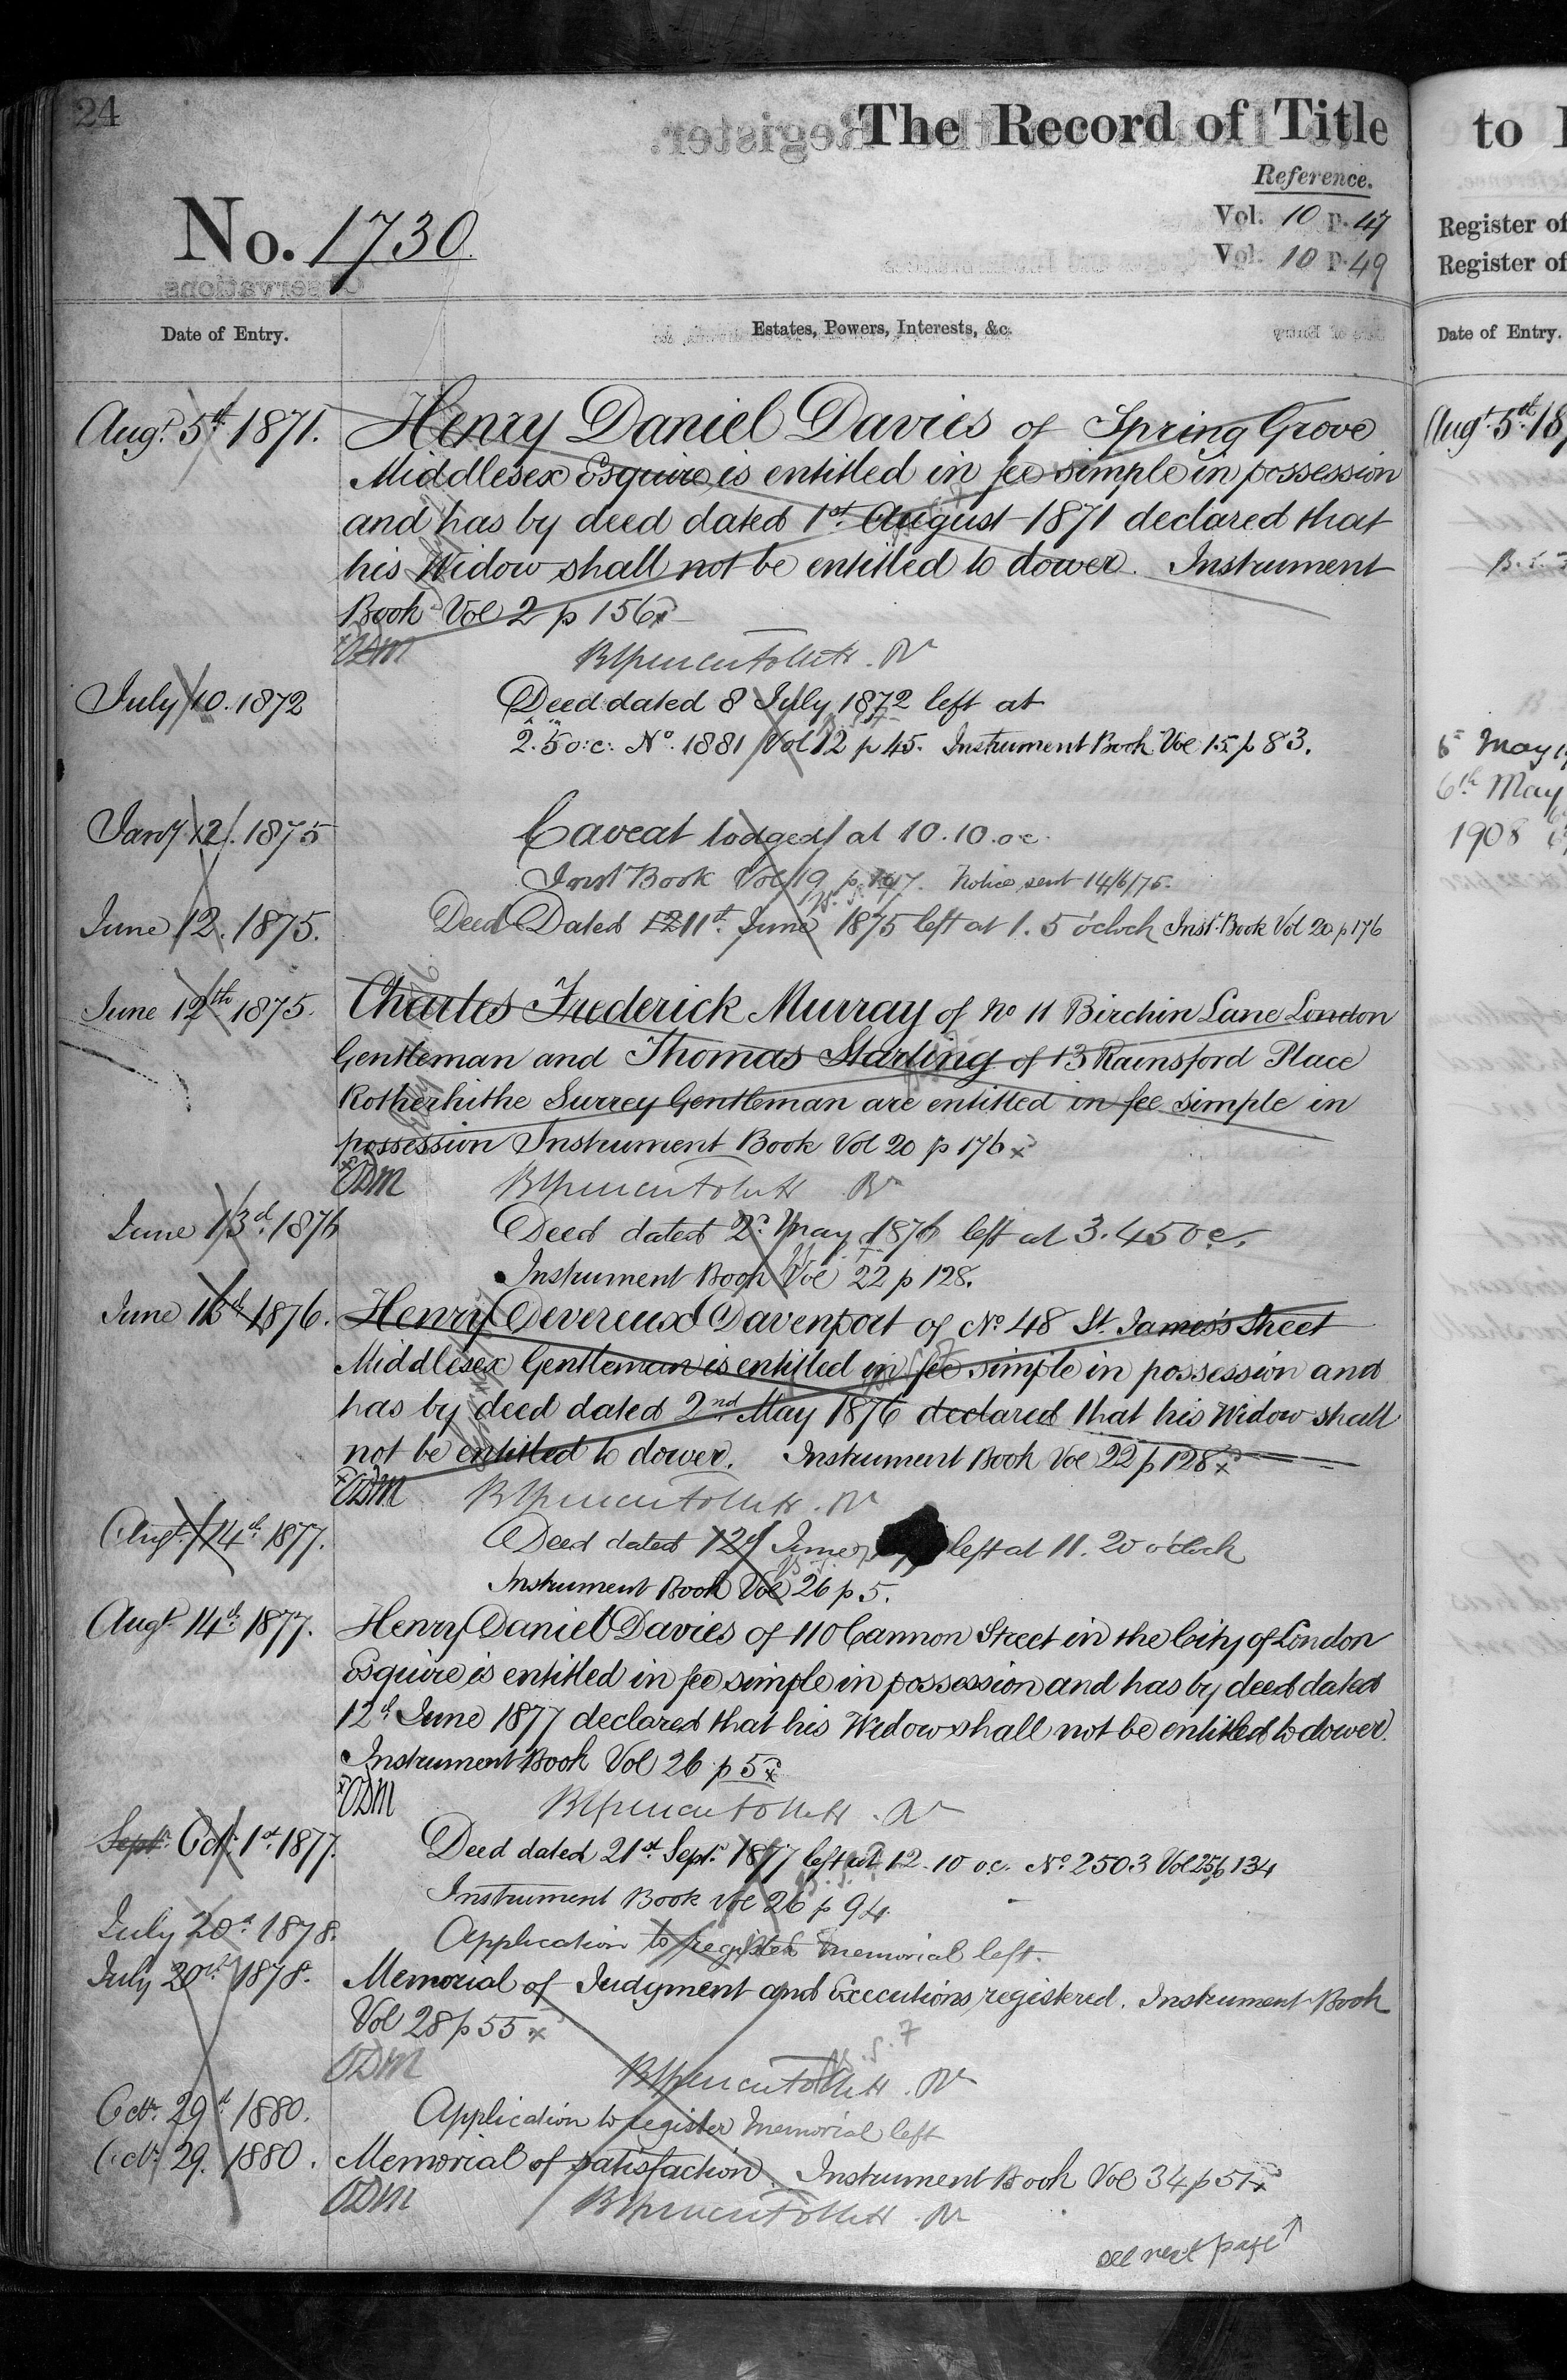 24
The Record of Title
Reference.
No. 1730.
Vol. 10 p. 47
Vol. 10 p. 49
Date of Entry.
Estates, Powers, Interests, &c.
Augt. 5th 1871. Henry Daniel Davies of Spring Grove
Middlesex Esquire is entitled in fee simple in possession
and has by deed dated 1st August 1871 declared that
his Widow shall not be entitled to dower. Instrument
Book Vol 2 p 156 x
ODM
July 10. 1872 Deed dated 8 July 1872 left at
2.5 o:c: No. 1881 Vol 12 p 45. Instrument Book Vol 15 p 83.
Jany 12. 1875 Caveat lodged at 10.10. oc.
Inst Book Vol 19 p 197. Notice sent 14/6/75.
June 12. 1875. Deed Dated 12 11th June 1875 left at 1. 5 o'clock Inst. Book Vol 20 p 176
June 12th 1875. Charles Frederick Murray of No 11 Birchin Lane London
Gentleman and Thomas Starling of 13 Rainsford Place
Rotherhithe Surrey Gentleman are entitled in fee simple in
possession Instrument Book Vol 20 p 176 x
ODM
June 13d. 1876 Deed dated 2d. May 1876 left at 3.45 o c.
Instrument Book Vol 22 p 128.
June 1876. Henry Devereux Davenport of No. 48 St. James's Street
Middlesex Gentleman is entitled in fee simple in possession and
has by deed dated 2nd May 1876 declared that his Widow shall
not be entitled to dower. Instrument Book Vol 22 p 128 x
ODM
Augt. 14th. 1877. Deed dated 12th June left at 11. 20 o'clock
Instrument Book Vol 26 p 5.
Augt 14th. 1877. Henry Daniel Davies of 110 Cannon Street in the City of London
Esquire is entitled in fee simple in possession and has by deed dated
12th June 1877 declared that his Widow shall not be entitled to dower.
Instrument Book Vol 26 p 5 x
ODM
Sept. Oct. 1st. 1877. Deed dated 21st Sept. 1877 left at 12.10 o.c. No. 2503 Vol 25 p 134
Instrument Book Vol 26 p 94.
July 20th 1878. Application to register memorial left.
July 20th 1878. Memorial of Judgment and Executions registered. Instrument Book
Vol 28 p 55 x
ODM
Oct. 29th 1880. Application to register Memorial left
Oct. 29. 1880. Memorial of satisfaction. Instrument Book Vol 34 p 51 x
ODM
see next page
to
Register of
Register of
Date of Entry.
Augt. 5th 18
5 May
6th May
1908